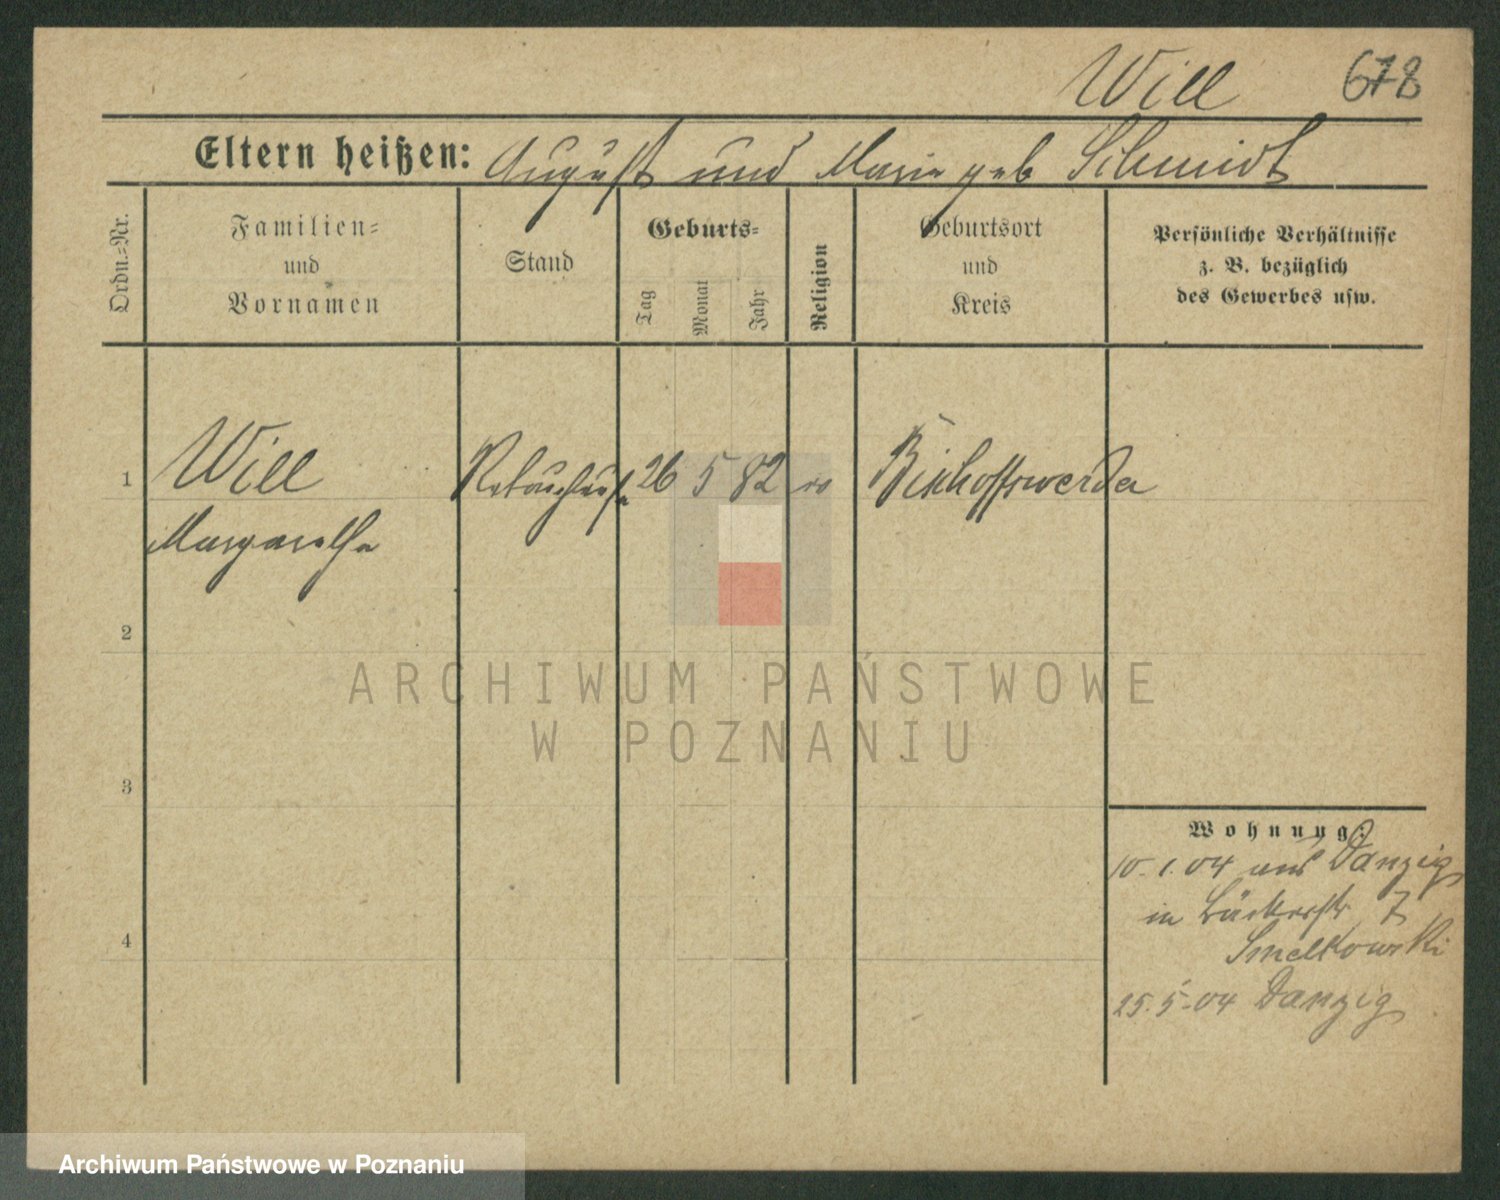 Will 678
Eltern heißen: August und Marie geb Schmidt
Ordn.=Nr.
Familien=
und
Vornamen
Stand
Geburts=
Tag
Monat
Jahr
Religion
Geburtsort
und
Kreis
Persönliche Verhältnisse
z. B. bezüglich
des Gewerbes usw.
1 Will 26 5 82 ev Bischoffswerder
Margarethe
2
3
4
Wohnung:
10.1.04 aus Danzig
in Bäckerstr 7
Smelkowski
25.5.04 Danzig
ARCHIWUM PAŃSTWOWE
W POZNANIU
Archiwum Państwowe w Poznaniu